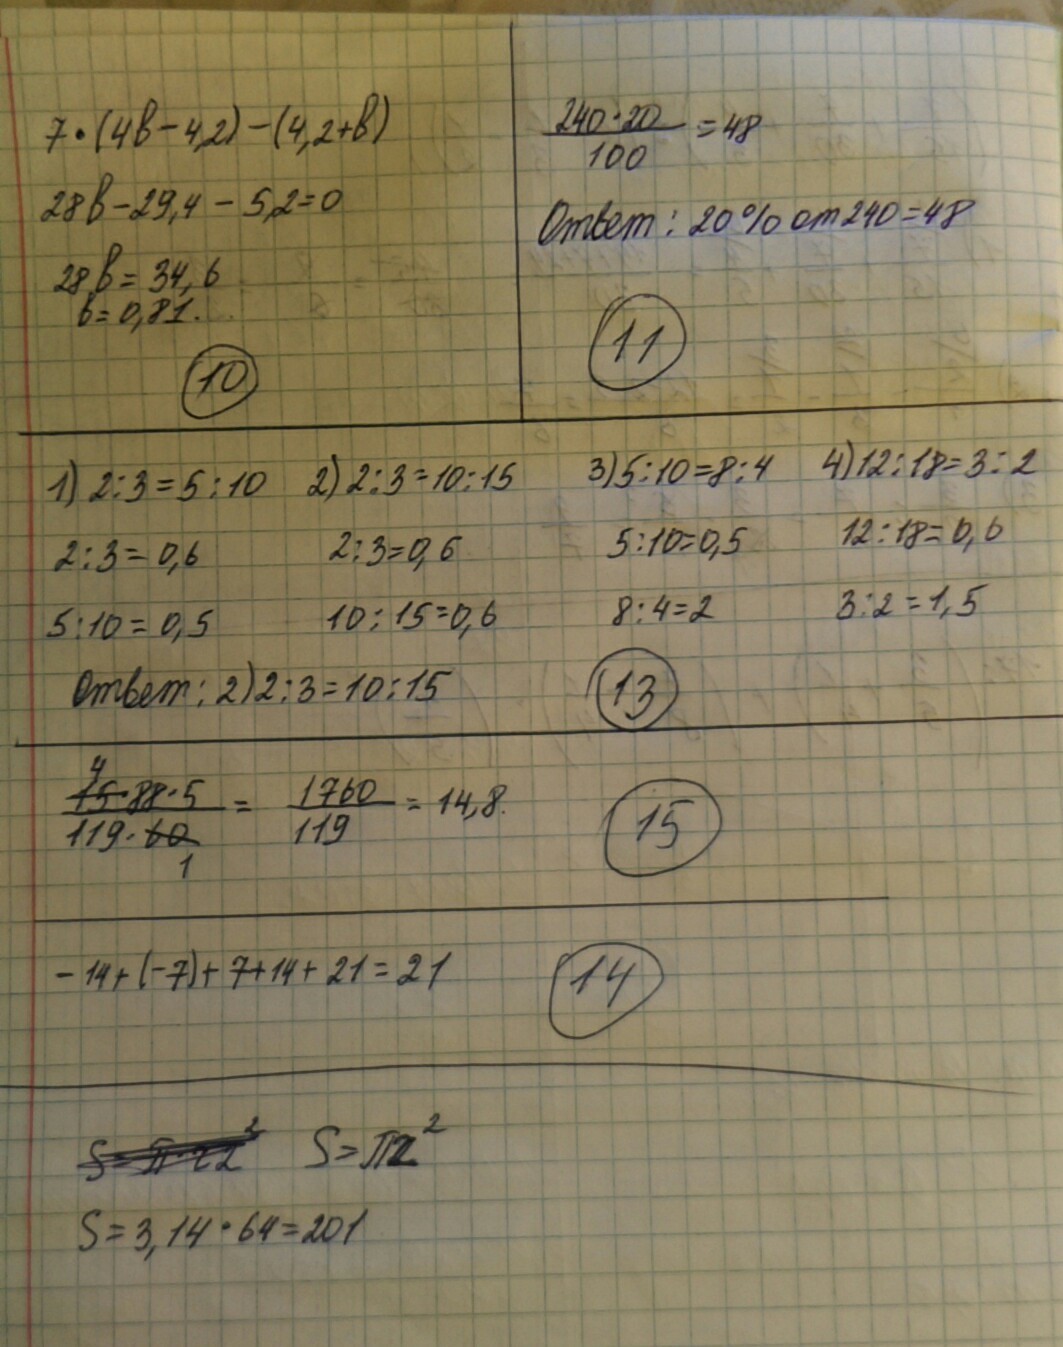 7·(4в-4,2)-(4,2+в)
28в-29,4-5,2=0
28в=34,6
в=0,81.
10
240·20
100
=48
Ответ: 20% от 240=48
11
1) 2:3=5:10
2:3=0,6
5:10=0,5
2) 2:3=10:15
2:3=0,6
10:15=0,6
3) 5:10=8:4
5:10=0,5
8:4=2
4) 12:18=3:2
12:18=0,6
3:2=1,5
Ответ: 2) 2:3=10:15
13
4
75·88·5
119·60
1
=
1760
119
=14,8.
15
-14+(-7)+7+14+21=21
14
S=πr²
S=3,14·64=201